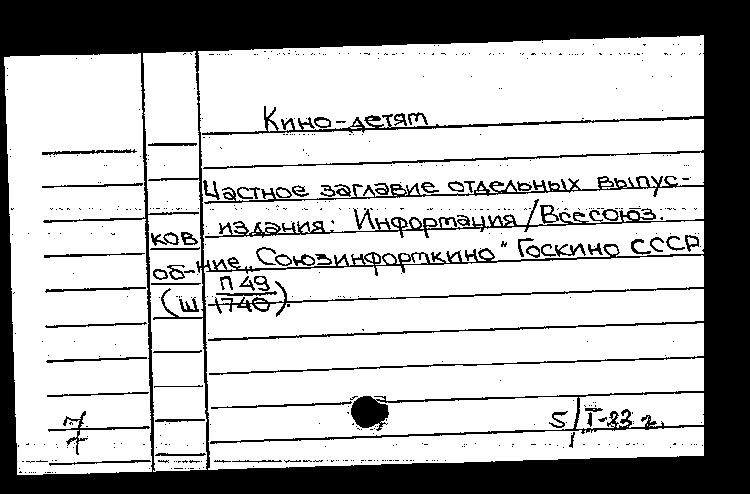 Кино-детям.
Частное заглавие отдельных выпус-
ков издания: Информация/Всесоюз.
об-ние „Союзинформкино" Госкино СССР
(Ш П 49
1746).
7 5/I-83 г.